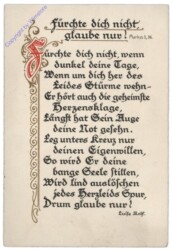 „Fürchte dich nicht,
glaube nur!"
Fürchte dich nicht, wenn
dunkel deine Tage,
Wenn um dich her des
Leides Stürme wehn-
Er hört auch die geheimste
Herzensklage,
Längst hat Sein Auge
deine Not gesehn.
Leg unters Kreuz nur
deinen Eigenwillen,
So wird Er deine
bange Seele stillen,
Wird lind auslöschen
jedes Herzleids Spur,
Drum glaube nur!